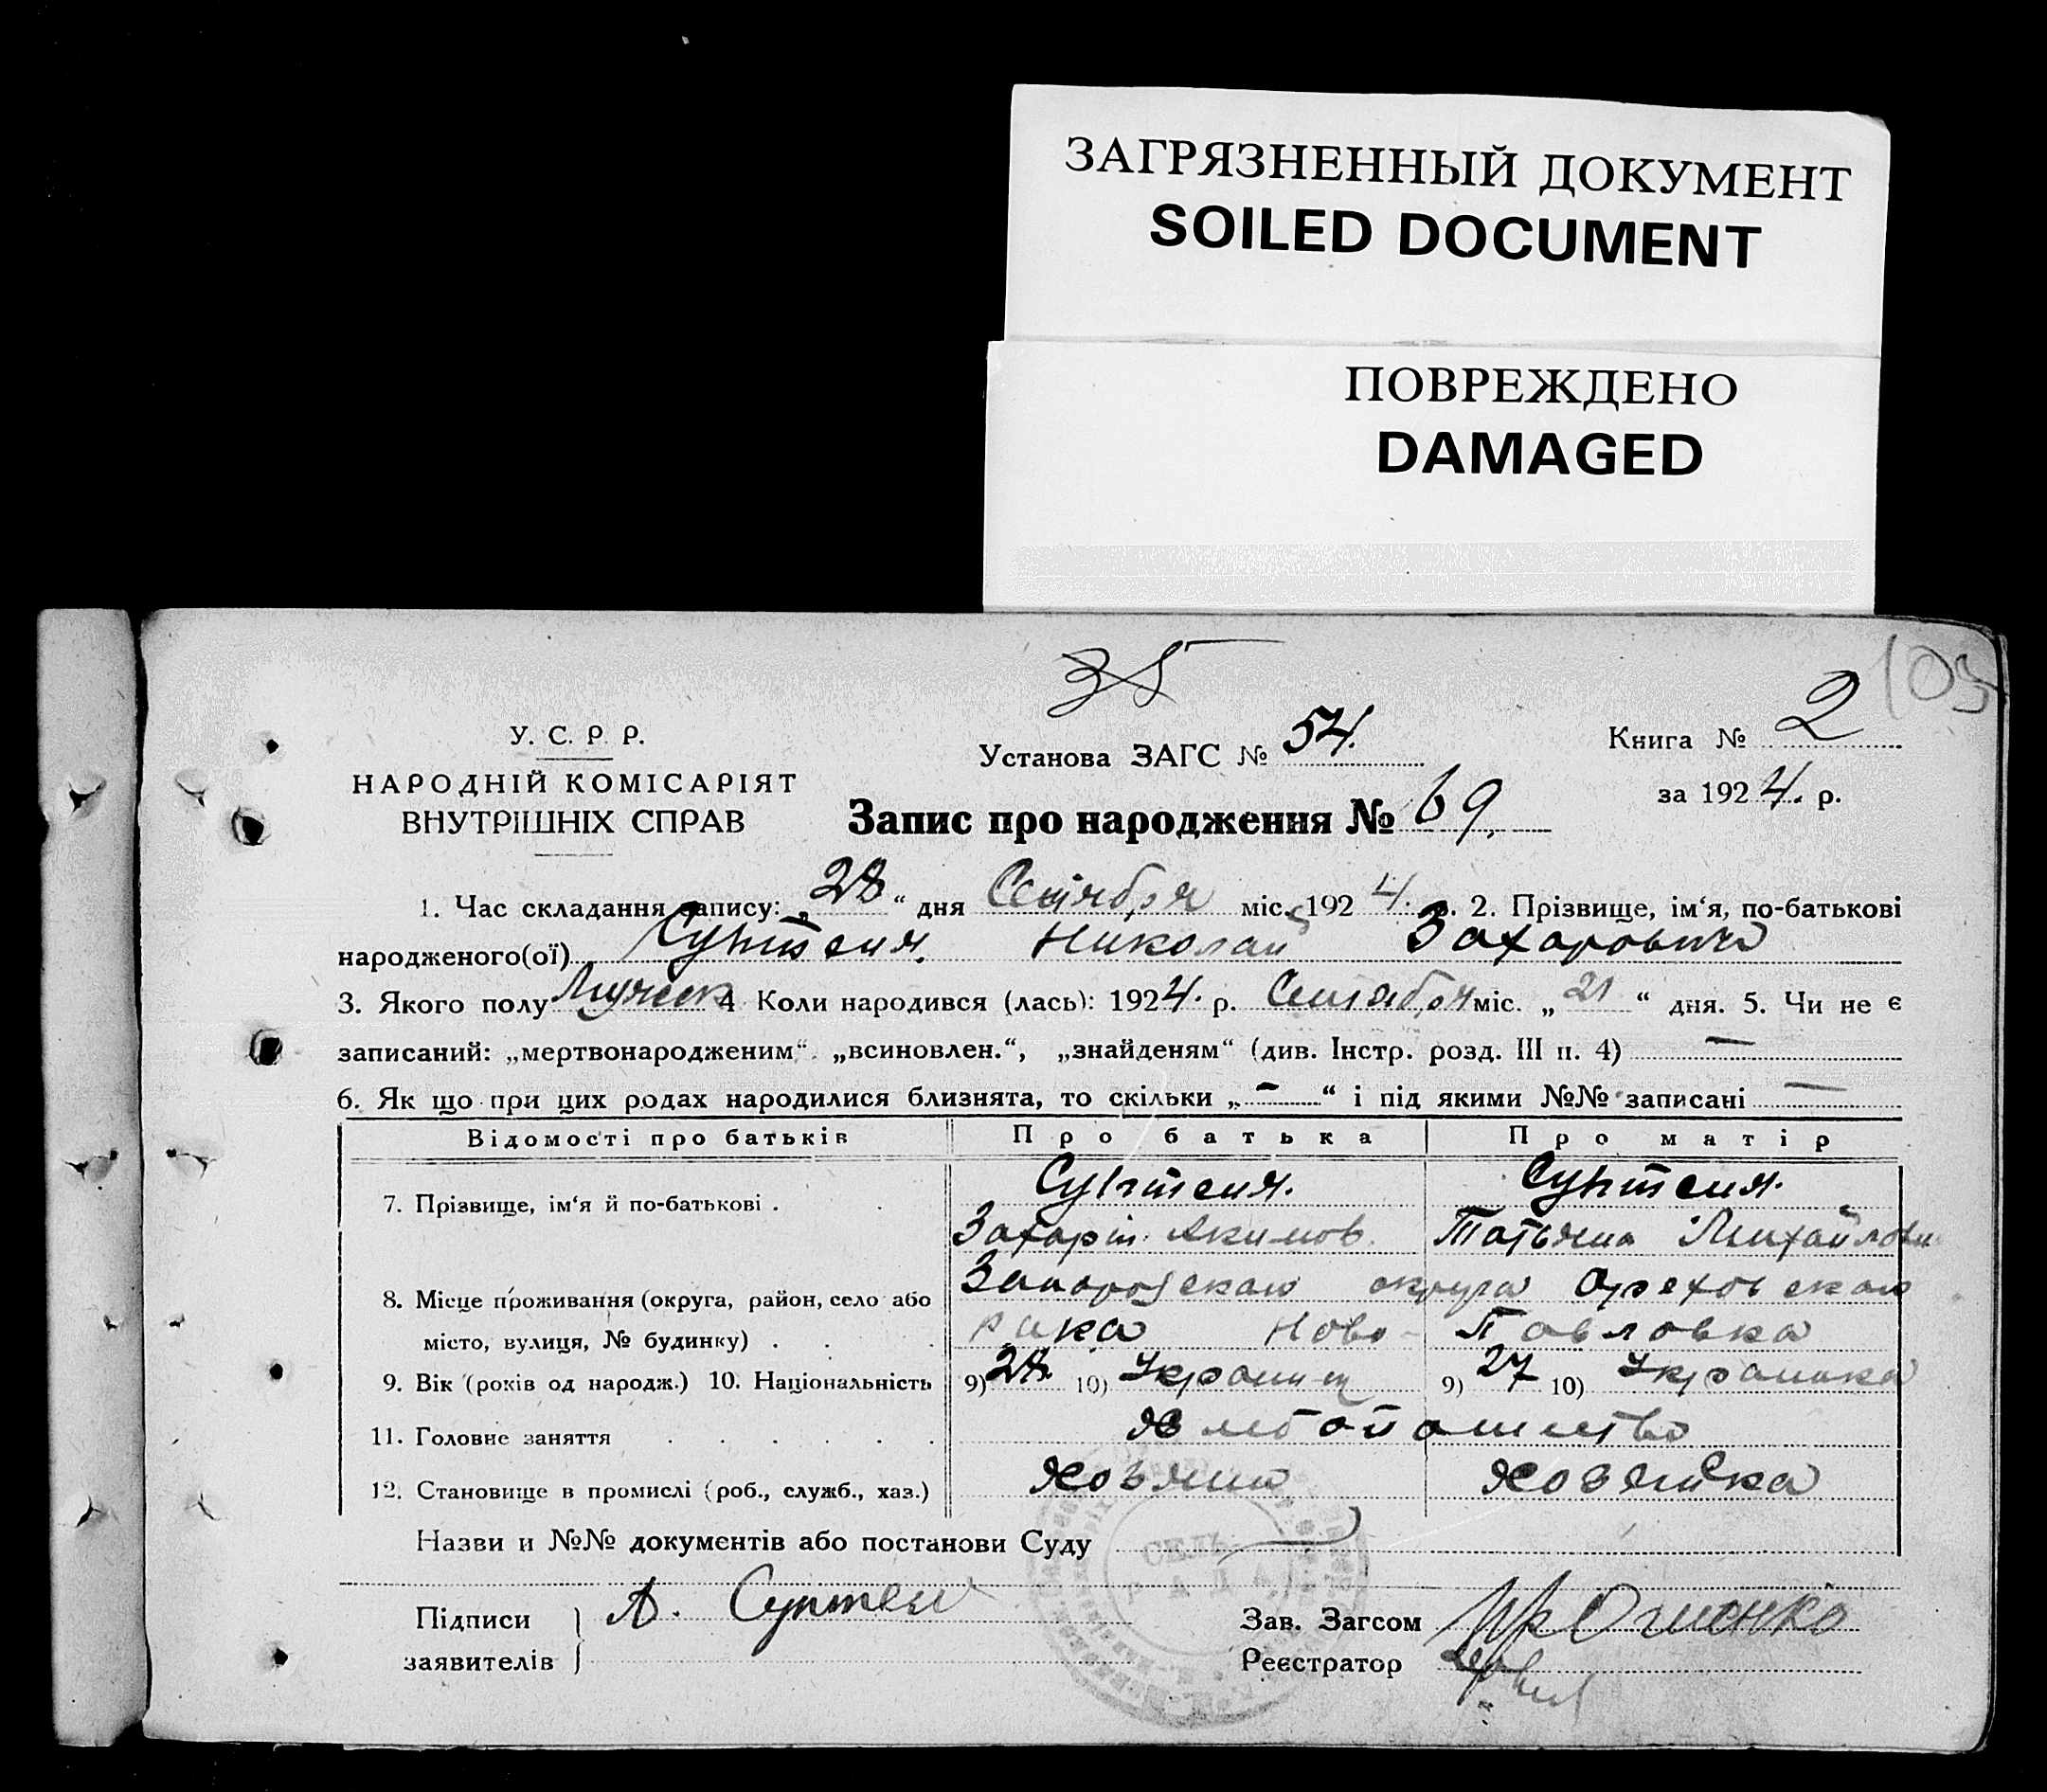 ЗАГРЯЗНЕННЫЙ ДОКУМЕНТ
SOILED DOCUMENT
ПОВРЕЖДЕНО
DAMAGED
35
103
У. С. Р. Р.
НАРОДНІЙ КОМІСАРІЯТ
ВНУТРІШНІХ СПРАВ
Установа ЗАГС № 54.
Книга № 2
за 1924. р.
Запис про народження № 69.
1. Час складання запису: „28“ дня Сентября міс. 1924. р. 2. Прізвище, ім‘я, по-батькові
народженого(ої) Николай Захарович
3. Якого полу Мужеск 4 Коли народився (лась): 1924. р. Сентября міс. „21“ дня. 5. Чи не є
записаний: „мертвонародженим“ „всиновлен.“, „знайденям“ (див. Інстр. розд. III п. 4) —
6. Як що при цих родах народилися близнята, то скільки „—“ і під якими №№ записані —
Відомості про батьків Про батька Про матір
7. Прізвище, ім‘я й по-батькові .
Захарій Акимов. Татьяна Михайловн
8. Місце проживання (округа, район, село або Запорожская округа Ореховская
місто, вулиця, № будинку) . . . Ново-Павловка
9. Вік (років од народж.) 10. Національність 9) 28. 10) Украинец 9) 27 10) Украинка
11. Головне заняття . . . . . . Хлебопашество
12. Становище в промислі (роб., служб., хаз.) Хозяин Хозяйка
Назви и №№ документів або постанови Суду
СЕЛЬ
РАДА
Підписи А.
заявителів
Зав. Загсом
Реєстратор